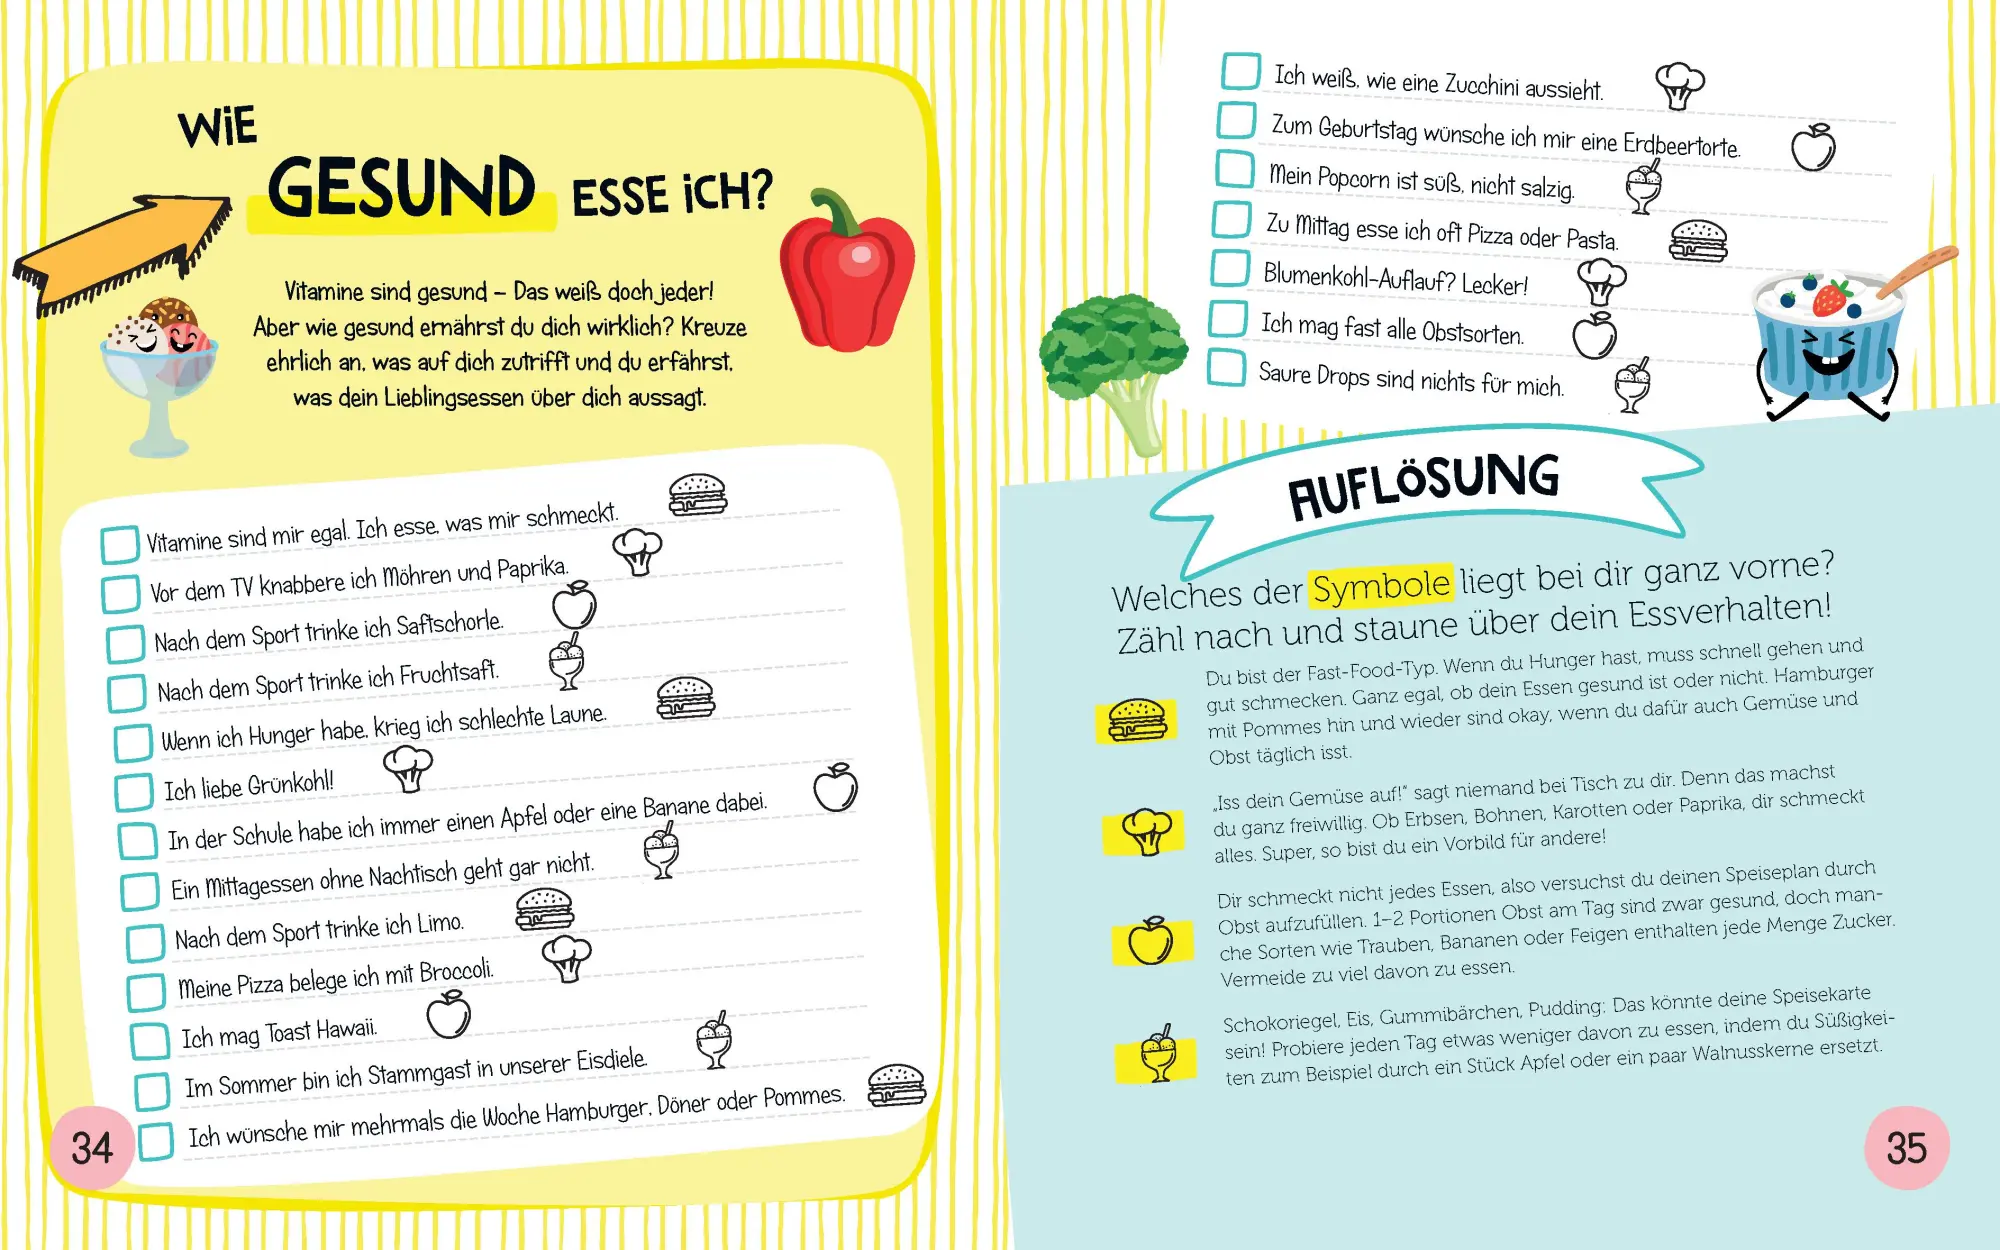 WiE
GESUND ESSE iCH?
Vitamine sind gesund – Das weiß doch jeder!
Aber wie gesund ernährst du dich wirklich? Kreuze
ehrlich an, was auf dich zutrifft und du erfährst,
was dein Lieblingsessen über dich aussagt.
Vitamine sind mir egal. Ich esse, was mir schmeckt.
Vor dem TV knabbere ich Möhren und Paprika.
Nach dem Sport trinke ich Saftschorle.
Nach dem Sport trinke ich Fruchtsaft.
Wenn ich Hunger habe, krieg ich schlechte Laune.
Ich liebe Grünkohl!
In der Schule habe ich immer einen Apfel oder eine Banane dabei.
Ein Mittagessen ohne Nachtisch geht gar nicht.
Nach dem Sport trinke ich Limo.
Meine Pizza belege ich mit Broccoli.
Ich mag Toast Hawaii.
Im Sommer bin ich Stammgast in unserer Eisdiele.
Ich wünsche mir mehrmals die Woche Hamburger, Döner oder Pommes.
34
Ich weiß, wie eine Zucchini aussieht.
Zum Geburtstag wünsche ich mir eine Erdbeertorte.
Mein Popcorn ist süß, nicht salzig.
Zu Mittag esse ich oft Pizza oder Pasta.
Blumenkohl-Auflauf? Lecker!
Ich mag fast alle Obstsorten.
Saure Drops sind nichts für mich.
AUFLÖSUNG
Welches der Symbole liegt bei dir ganz vorne?
Zähl nach und staune über dein Essverhalten!
Du bist der Fast-Food-Typ. Wenn du Hunger hast, muss schnell gehen und
gut schmecken. Ganz egal, ob dein Essen gesund ist oder nicht. Hamburger
mit Pommes hin und wieder sind okay, wenn du dafür auch Gemüse und
Obst täglich isst.
„Iss dein Gemüse auf!“ sagt niemand bei Tisch zu dir. Denn das machst
du ganz freiwillig. Ob Erbsen, Bohnen, Karotten oder Paprika, dir schmeckt
alles. Super, so bist du ein Vorbild für andere!
Dir schmeckt nicht jedes Essen, also versuchst du deinen Speiseplan durch
Obst aufzufüllen. 1–2 Portionen Obst am Tag sind zwar gesund, doch man-
che Sorten wie Trauben, Bananen oder Feigen enthalten jede Menge Zucker.
Vermeide zu viel davon zu essen.
Schokoriegel, Eis, Gummibärchen, Pudding: Das könnte deine Speisekarte
sein! Probiere jeden Tag etwas weniger davon zu essen, indem du Süßigkei-
ten zum Beispiel durch ein Stück Apfel oder ein paar Walnusskerne ersetzt.
35